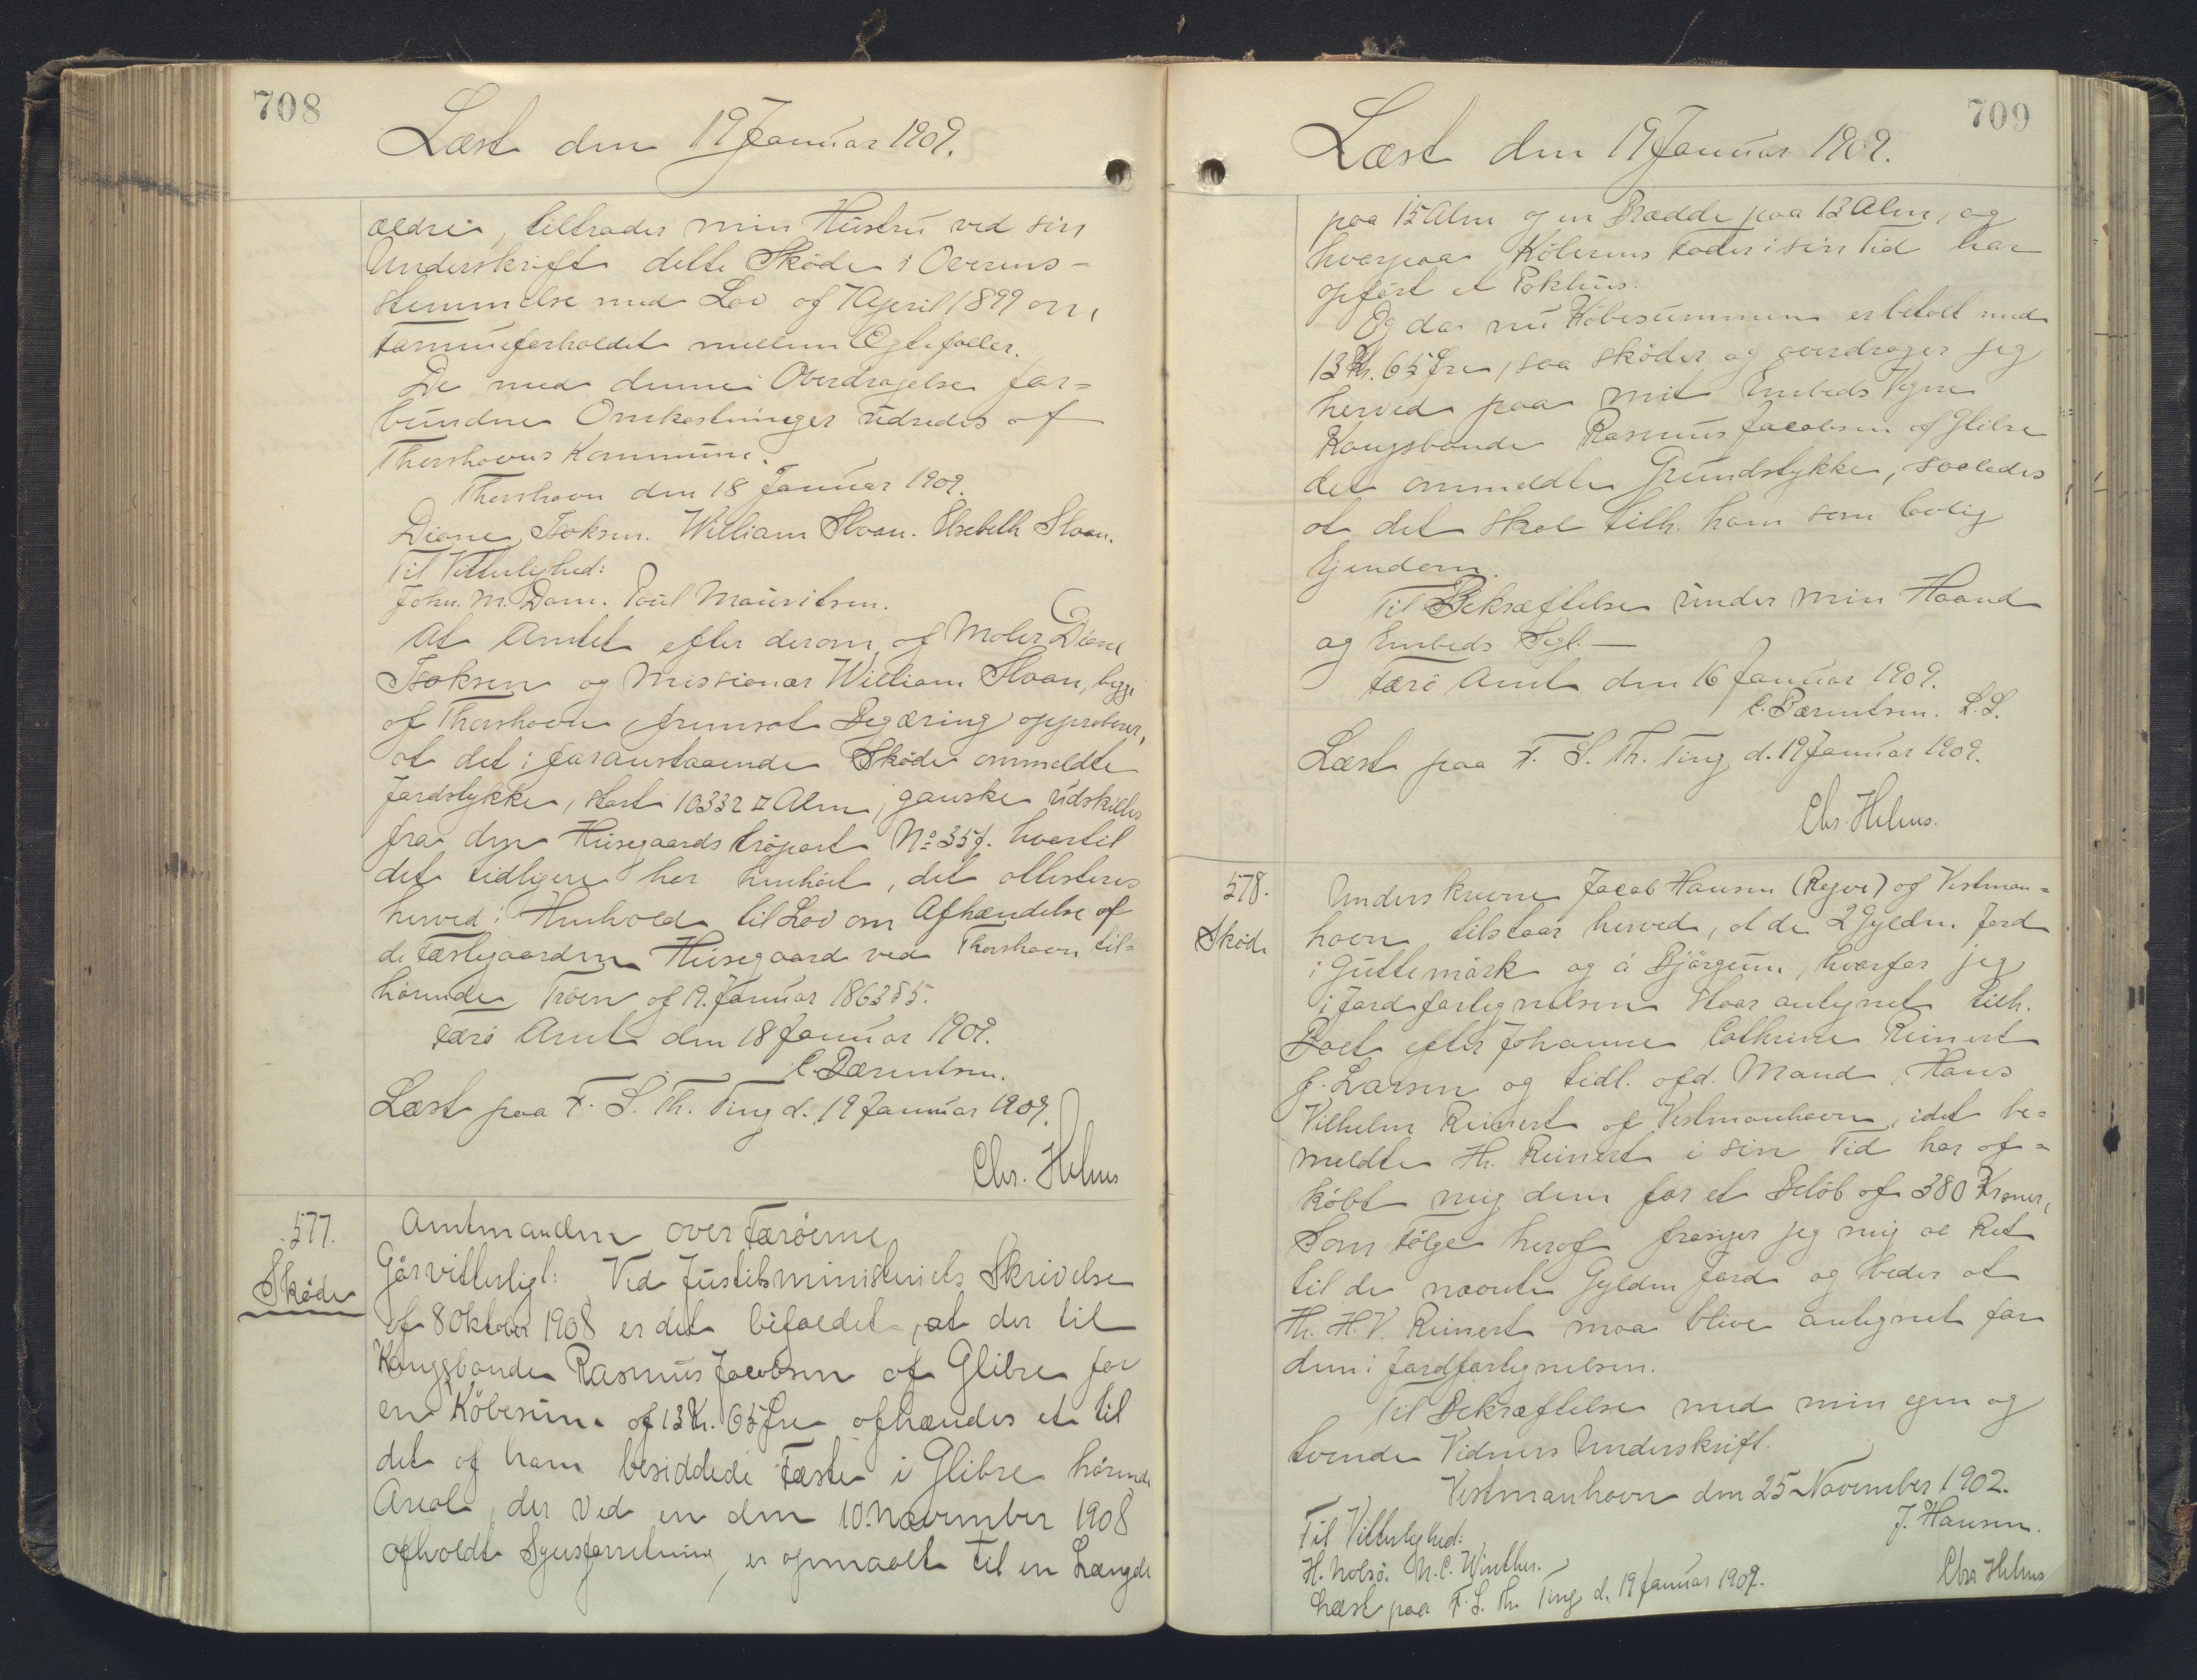 708
Læst den 19 Januar 1909.
ældre, tiltræder min Hustru ved sin
Underskrift dette Skøde i Overens-
stemmelse med Lov af 7 April 1899 om
Formueforholdet mellem Ægtefæller.
De med denne Overdragelse for-
bundne Omkostninger udredes af
Thorshavns Kommune.
Thorshavn den 18 Januar 1909.
Diane Isaksen. William Sloan. Elsebeth Sloan.
Til Vitterlighed:
John. M. Dam. Poul Mouritsen.
At Amtet efter derom, af Maler Diane
Isaksen og Missionær William Sloan, begge
af Thorshavn, fremsat Begæring approberer,
at det i foranstaaende Skøde ommeldte
Jordstykke, stort 10332 □ Alen, ganske udskilles
fra den Husegaards trøpart No 35f. hvortil
det tidligere har henhørt, det attesteres
herved i Henhold til Lov om Afhændelse af
de Fæstegaarden Husegaard ved Thorshavn til-
hørende Trøer af 19. Januar 1863 § 5.
Færø Amt den 18 Januar 1909.
C. Bærentsen.
Læst paa F. S. Th. Ting d. 19 Januar 1909.
Chr. Helms
577.
Skøde
Amtmanden over Færøerne
Gør vitterligt: Ved Justitsministeriets Skrivelse
af 8 Oktober 1908 er det bifaldet, at der til
Kongsbonde Rasmus Jacobsen af Glibre for
en Købesum. af 13 Kr. 65 Øre afhændes et til
det af ham besiddede Fæste i Glibre hørende
Areal, der ved en den 10. November 1908
afholdt Synsforretning, er opmaalt til en Længde
709
Læst den 19 Januar 1909.
paa 15 Alen og en Bredde paa 13 Alen, og
hvorpaa Køberens Fader i sin Tid har
opført et Pakhus.
Og da nu Købesummen er betalt med
13 Kr. 65 Øre, saa skøder og overdrager jeg
herved paa mit Embeds Vegne
Kongsbonde Rasmus Jacobsen af Glibre
det ommeldte Grundstykke, saaledes
at det skal tilh. ham som lovlig
Ejendom.
Til Bekræftelse under min Haand
og Embeds Segl. —
Færø Amt den 16 Januar 1909.
C. Bærentsen. L.S.
Læst paa F. S. Th. Ting d. 19 Januar 1909.
Chr. Helms.
578.
Skøde
Underskrevne Jacob Hansen (Rejve) af Vestman-
havn tilstaar herved, at de 2 Gylden Jord
i Guttemørk og á Bjørgum, hvorfor jeg
i Jordfortegnelsen staar antegnet tilh.
Boet efter Johanne Cathrine Reinert
f. Larsen og tidl. afd. Mand, Hans
Vilhelm Reinert af Vestmanhavn, idet be-
meldte Hr. Reinert i sin Tid har af-
købt mig dem for et Beløb af 380 Kroner,
Som Følge heraf frasiger jeg mig al Ret
til de nævnte Gylden Jord og beder at
Hr. H. V. Reinert maa blive antegnet for
dem i Jordfortegnelsen.
Til Bekræftelse med min egen og
tvende Vidners Underskrift.
Vestmanhavn den 25 November 1902.
J. Hansen.
Til Vitterlighed:
H. Nolsø. N. C. Winther.
Læst paa F. S. Th. Ting d. 19 Januar 1909.
Chr Helms